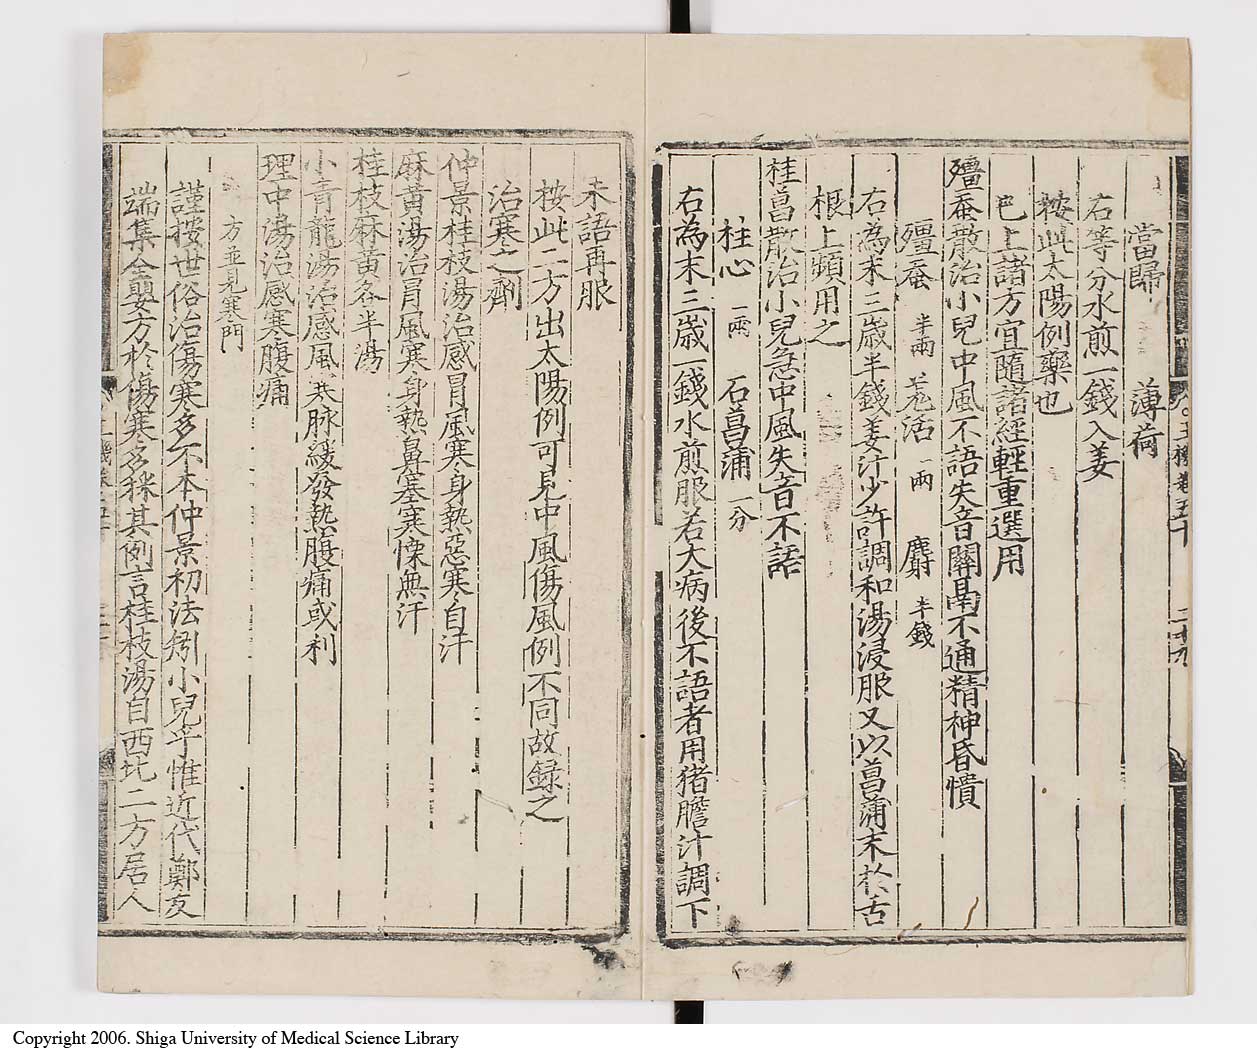 當歸 薄荷
右等分水煎一錢入姜
按此太陽例藥也
已上諸方宜隨諸經輕重選用
殭蚕散治小兒中風不語失音關鬲不通精神昏憒
殭蚕半兩 羌活一兩 麝半錢
右為末三歲半錢姜汁少許調和湯浸服又以菖蒲末於舌
根上頻用之
桂菖散治小兒急中風失音不語
桂心一兩 石菖蒲一分
右為末三歲一錢水煎服若大病後不語者用猪膽汁調下
未語再服
按此二方出太陽例可見中風傷風例不同故録之
治寒之劑
仲景桂枝湯治感冒風寒身熱惡寒自汗
麻黄湯治冒風寒身熱鼻塞寒慄無汗
桂枝麻黄各半湯
小青龍湯治感風寒脉緩發熱腹痛或利
理中湯治感寒腹痛
方並見寒門
謹按世俗治傷寒多不本仲景初法矧小兒乎惟近代鄭友
端集全嬰方於傷寒名稱其例言桂枝湯自西北二方居人
卷五十
二十九
Copyright 2006. Shiga University of Medical Science Library